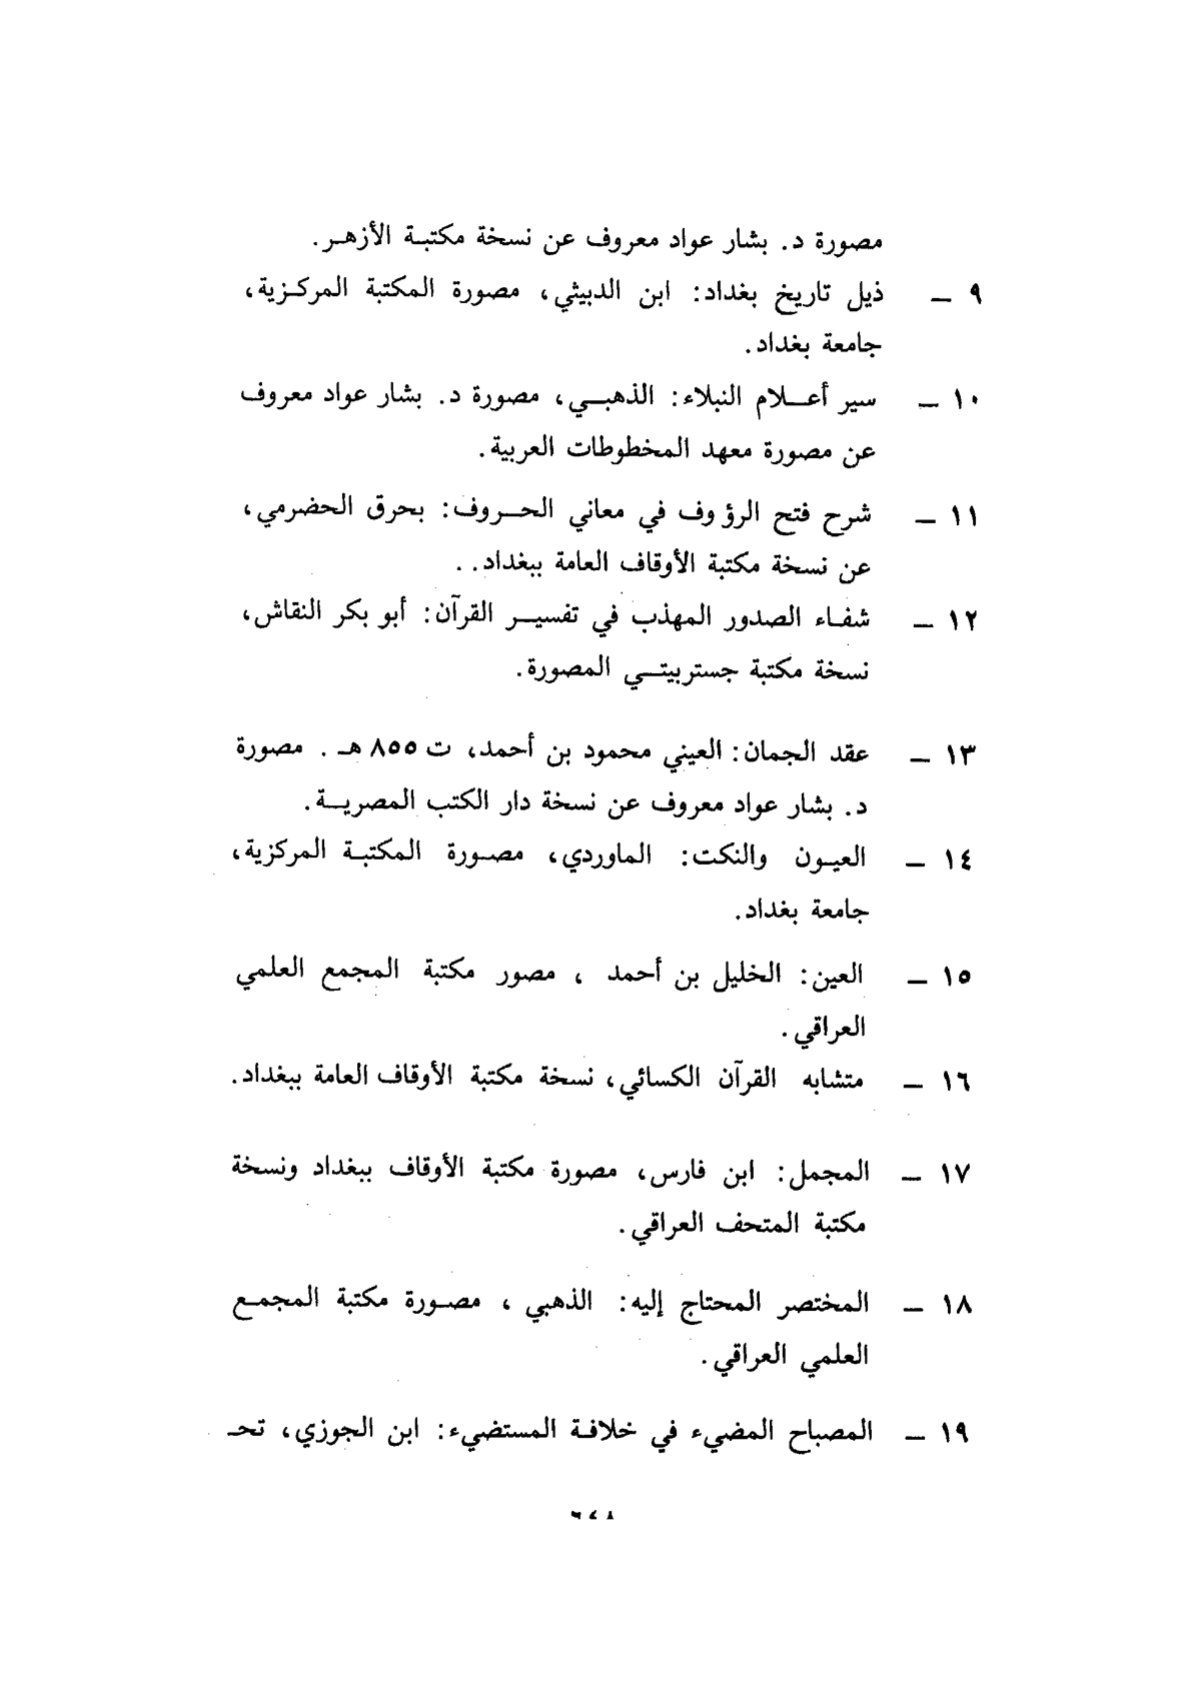 مصورة د. بشار عواد معروف عن نسخة مكتبة الأزهر.
٩ – ذيل تاريخ بغداد: ابن الدبيثي، مصورة المكتبة المركزية،
جامعة بغداد.
١٠ – سير أعلام النبلاء: الذهبي، مصورة د. بشار عواد معروف
عن مصورة معهد المخطوطات العربية.
١١ – شرح فتح الرؤوف في معاني الحروف: بحرق الحضرمي،
عن نسخة مكتبة الأوقاف العامة ببغداد. .
١٢ – شفاء الصدور المهذب في تفسير القرآن: أبو بكر النقاش،
نسخة مكتبة جستربيتي المصورة.
١٣ – عقد الجمان: العيني محمود بن أحمد، ت ٨٥٥ هـ . مصورة
د. بشار عواد معروف عن نسخة دار الكتب المصرية.
١٤ – العيون والنكت: الماوردي، مصورة المكتبة المركزية،
جامعة بغداد.
١٥ – العين: الخليل بن أحمد ، مصور مكتبة المجمع العلمي
العراقي.
١٦ – متشابه القرآن الكسائي، نسخة مكتبة الأوقاف العامة ببغداد.
١٧ – المجمل: ابن فارس، مصورة مكتبة الأوقاف ببغداد ونسخة
مكتبة المتحف العراقي.
١٨ – المختصر المحتاج إليه: الذهبي ، مصورة مكتبة المجمع
العلمي العراقي.
١٩ – المصباح المضيء في خلافة المستضيء: ابن الجوزي، تحـ